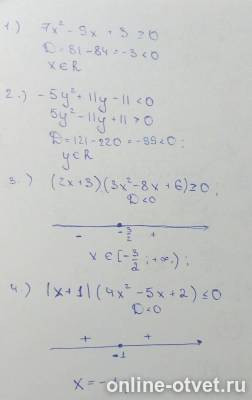 1) 7x² - 9x + 3 ≥ 0
D = 81 - 84 = -3 < 0
x ∈ R
2.) -5y² + 11y - 11 < 0
5y² - 11y + 11 > 0
D = 121 - 220 = -99 < 0;
y ∈ R
3.) (2x+3)(3x² - 8x + 6) ≥ 0,
D < 0
- -3/2 +
x ∈ [-3/2; +∞);
4.) |x+1|(4x² - 5x + 2) ≤ 0
D < 0
+ -1 +
x = -1
online-otvet.ru